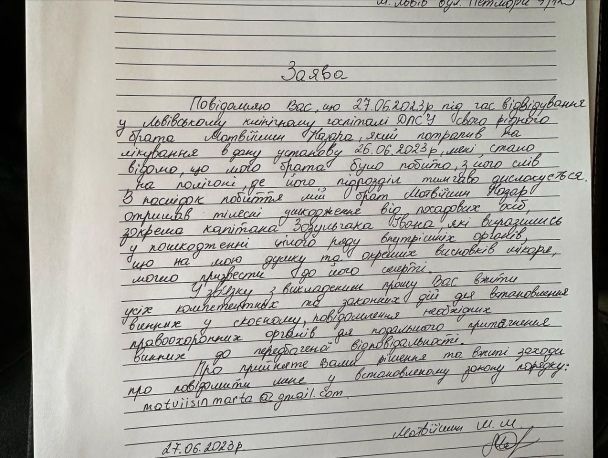 м. Львів вул. Петлюри
Заява
Повідомляю Вас, що 27.06.2023р під час відвідування
у Львівському клінічному госпіталі ДПСУ свого рідного
брата Матвіїшин Назара, який потрапив на
лікування в дану установу 26.06.2023р, мені стало
відомо, що мого брата було побито, з його слів
на полігоні, де його підрозділ тимчасово дислокується.
В наслідок побиття мій брат Матвіїшин Назар
отримав тілесні ушкодження від посадових осіб
зокрема капітана Зозульчака Івана, які виразились
у пошкодженні цілого ряду внутрішніх органів,
що на мою думку та окремих висновків лікаря,
могло призвести до його смерті.
У зв'язку з викладеним прошу Вас вжити
усіх компетентних та законних дій для встановлення
винних у скоєному, повідомлення необхідних
правоохоронних органів для подальшого притягнення
винних до передбаченої відповідальності.
Про прийняте Вами рішення та вжиті заходи
про повідомити мене у встановленому закону порядку:
matviisin.marta@gmail.com
27.06.2023р
Матвіїшин М.М